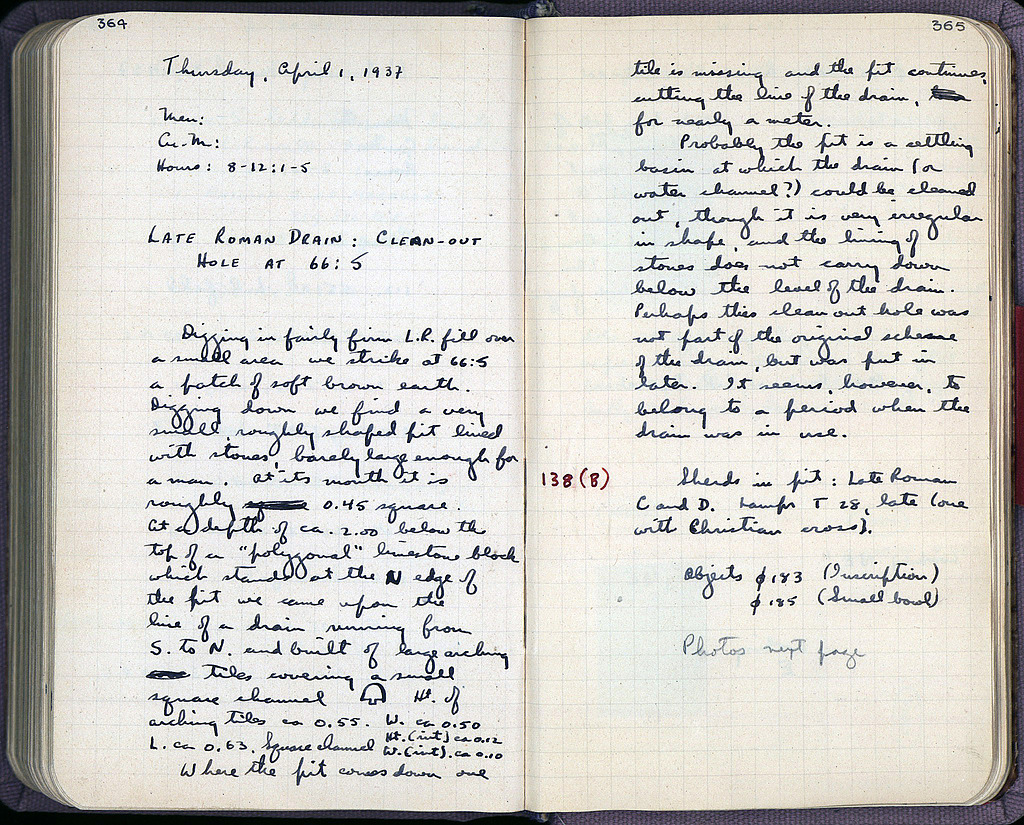 364
Thursday, April 1, 1937
Men:
Cu. M:
Hours: 8-12:1-5
LATE ROMAN DRAIN: CLEAN-OUT
HOLE AT 66:5
Digging in fairly firm L.R. fill over
a small area we strike at 66:5
a patch of soft brown earth.
Digging down we find a very
small, roughly shaped pit lined
with stones, barely large enough for
a man. At its mouth it is
roughly 0.45 square.
At a depth of ca. 2.00 below the
top of a "polygonal" limestone block
which stands at the N edge of
the pit we came upon the
line of a drain running from
S. to N. and built of large arching
tiles covering a small
square channel Ht. of
arching tiles ca 0.55. W. ca 0.50
L. ca 0.63. Square channel Ht. (int) ca 0.12
W. (int). ca 0.10
Where the pit comes down one
365
tile is missing and the pit continues,
cutting the line of the drain,
for nearly a meter.
Probably the pit is a settling
basin at which the drain (or
water channel?) could be cleaned
out, though it is very irregular
in shape, and the lining of
stones does not carry down
below the level of the drain.
Perhaps this clean out hole was
not part of the original scheme
of the drain, but was put in
later. It seems, however, to
belong to a period when the
drain was in use.
138 (B)
Sherds in pit: Late Roman
C and D. Lamps T 28, late (one
with Christian cross).
Objects ϕ 183 (Inscription)
ϕ 185 (Small bowl)
Photos next page